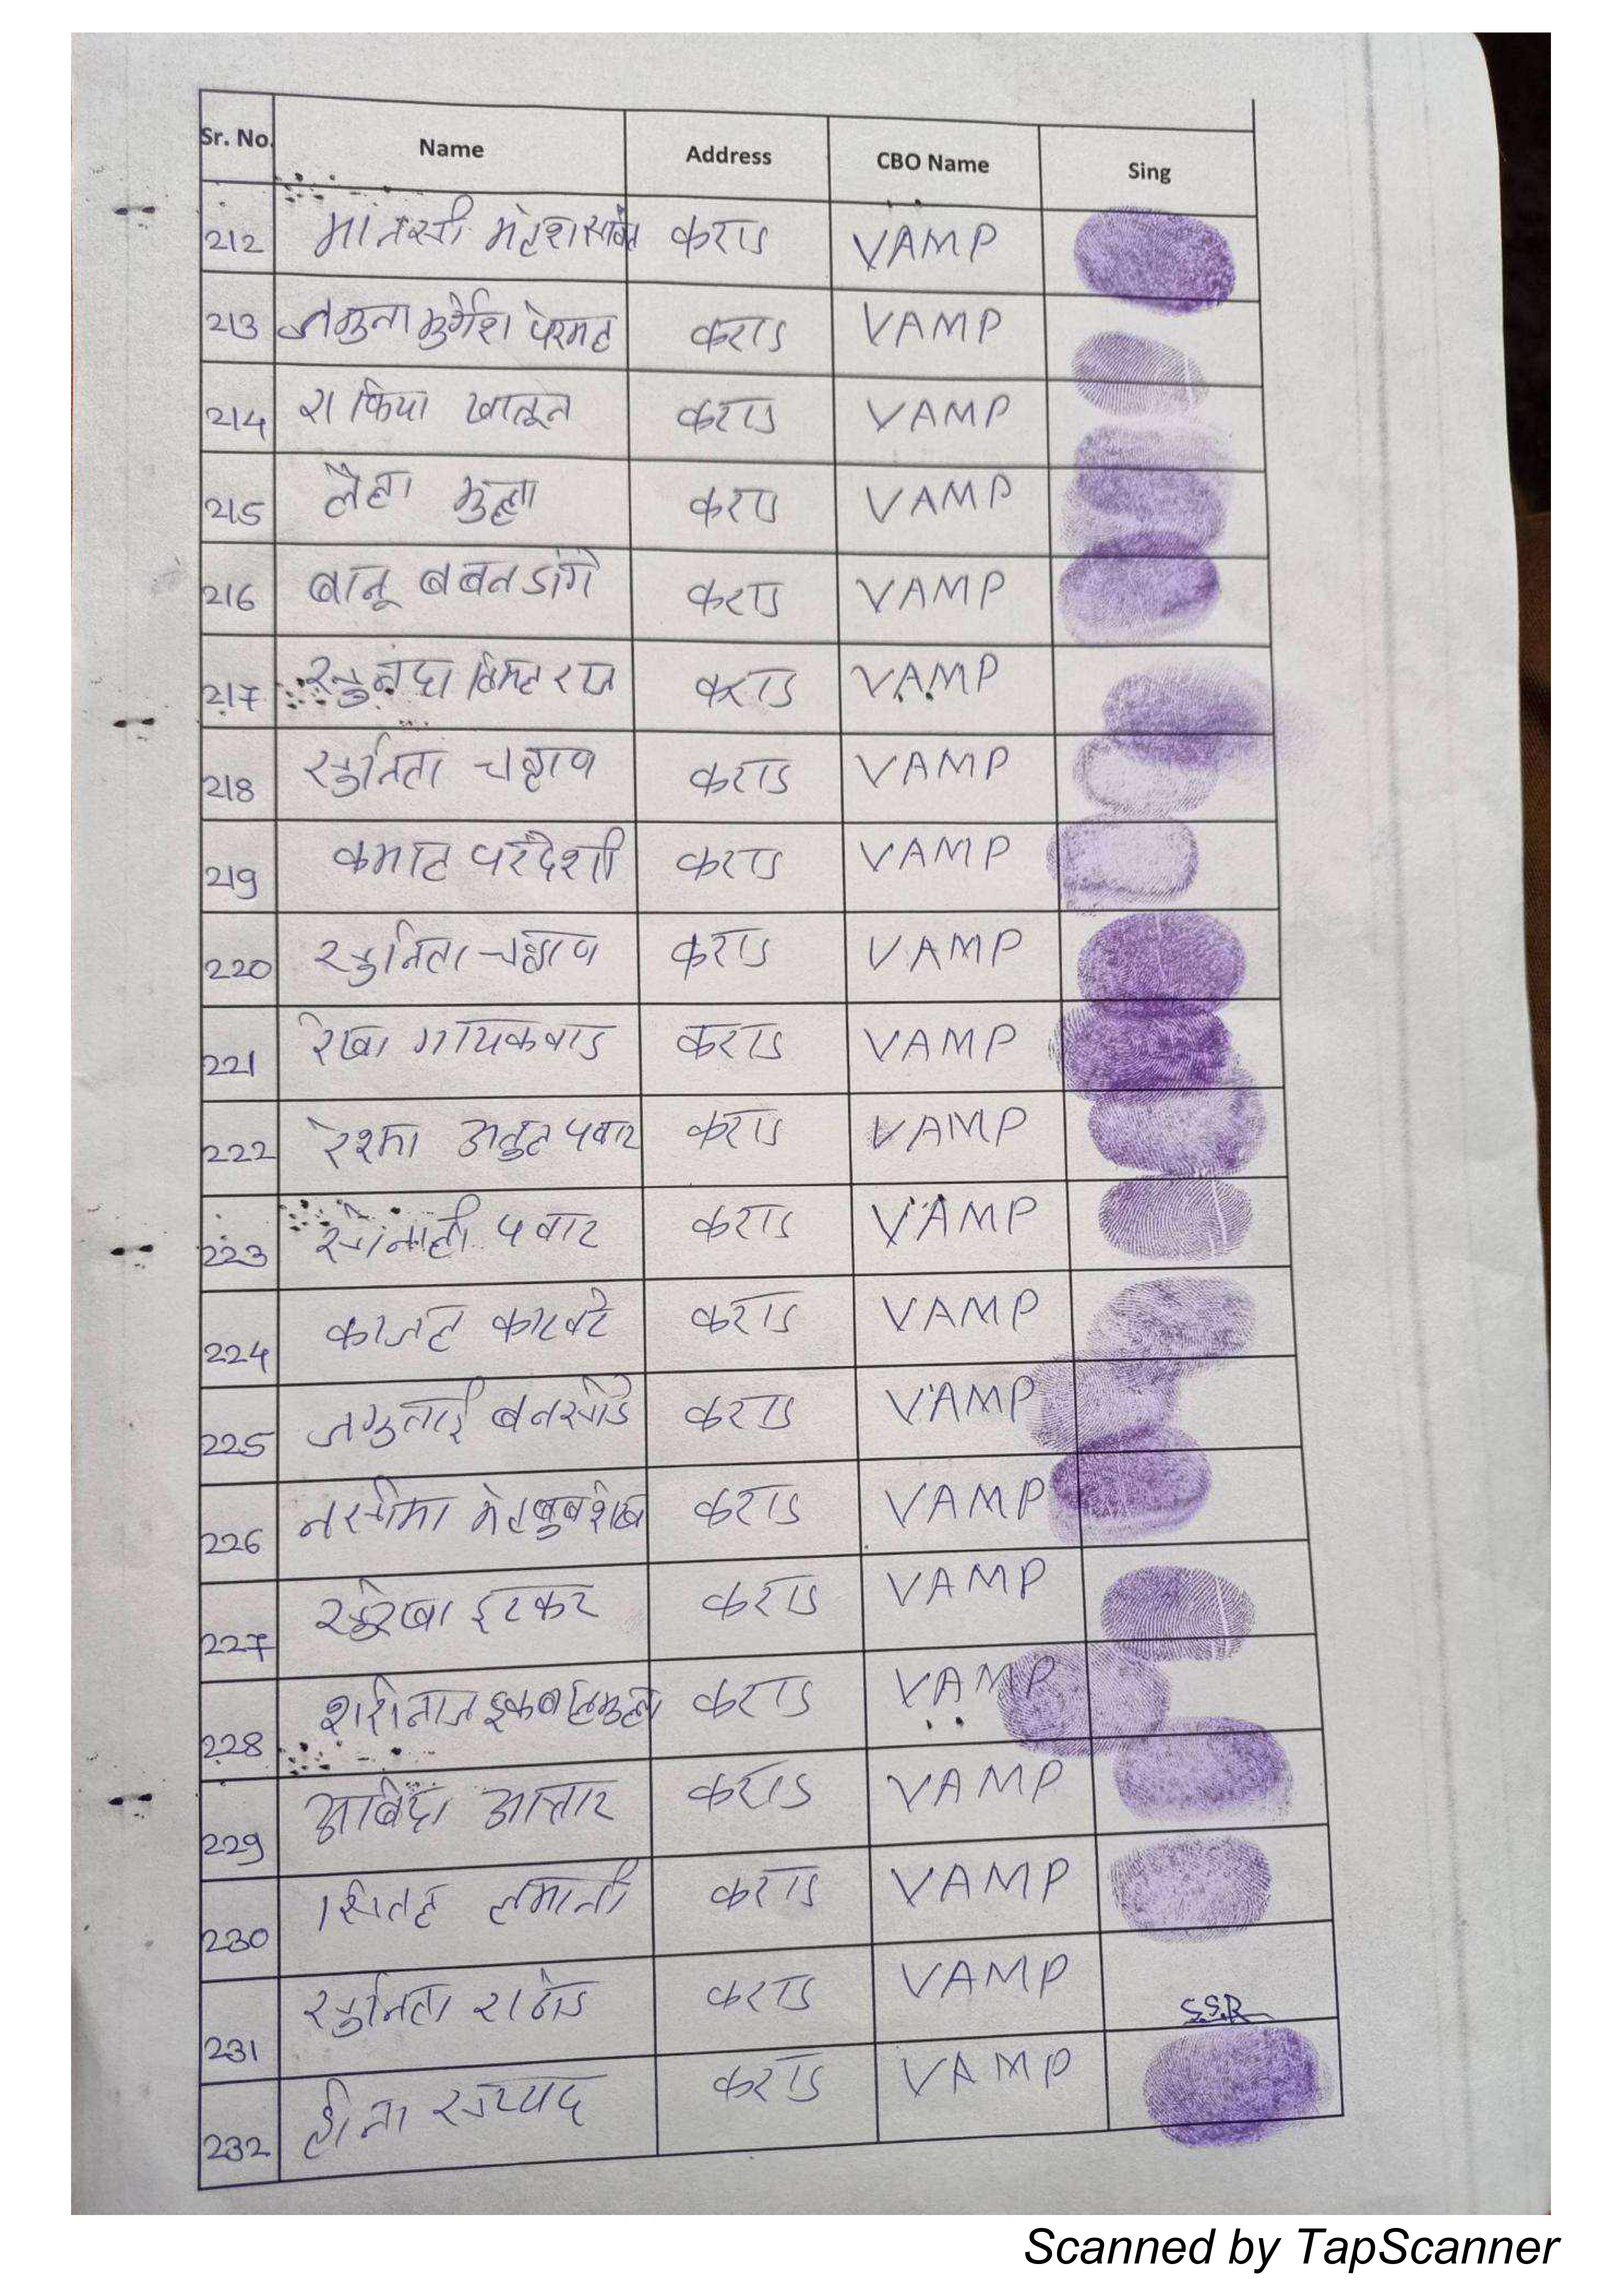 Sr. No. Name Address CBO Name Sing
212 मानसी महेश सावंत कराड VAMP
213 जमुना मुर्गेश पेरमल कराड VAMP
214 राफिया खातून कराड VAMP
215 लैला मुल्ला करा VAMP
216 बानू बबन डांगे कराड VAMP
217 सुनंदा कराड VAMP
218 सुनिता चव्हाण कराड VAMP
219 कमाल परदेशी कराड VAMP
220 सुनिता चव्हाण कराड VAMP
221 रेखा गायकवाड कराड VAMP
222 रेश्मा अतुल पवार कराड VAMP
223 सोनाली पवार कराड VAMP
224 काजल काटवटे कराड VAMP
225 जमुताई बनसोडे कराड VAMP
226 नसीमा मेहबुब शेख कराड VAMP
227 सुरेखा इटकर कराड VAMP
228 इकबाल मुल्ला कराड VAMP
229 आबिदा आत्तार कराड VAMP
230 शितल लमानी कराड VAMP
231 सुनिता राठोड कराड VAMP S.S.R
232 हीना सय्यद कराड VAMP
Scanned by TapScanner